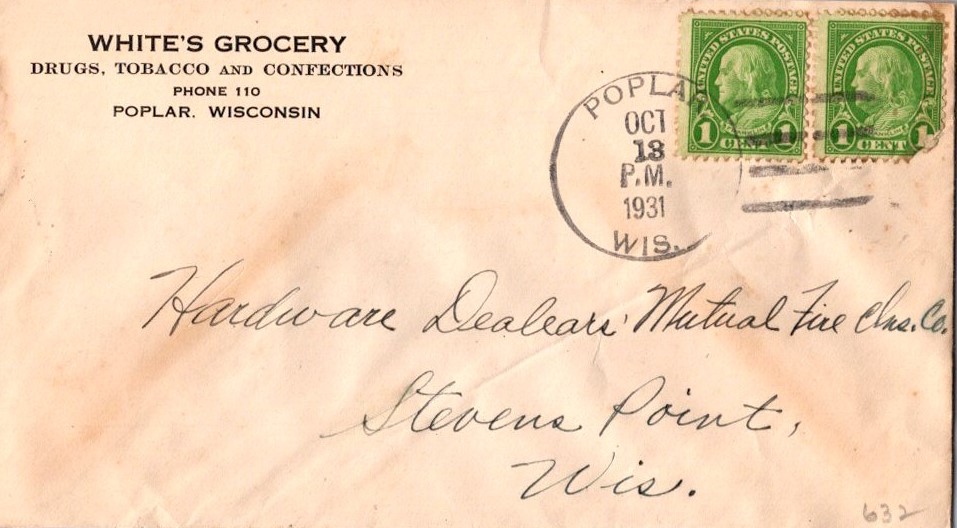 WHITE'S GROCERY
DRUGS, TOBACCO AND CONFECTIONS
PHONE 110
POPLAR, WISCONSIN
UNITED STATES POSTAGE
1 CENT 1
UNITED STATES POSTAGE
1 CENT 1
POPLAR
OCT
13
P.M.
1931
WIS.
Hardware Dealears' Mutual Fire Ins. Co.
Stevens Point,
Wis.
632